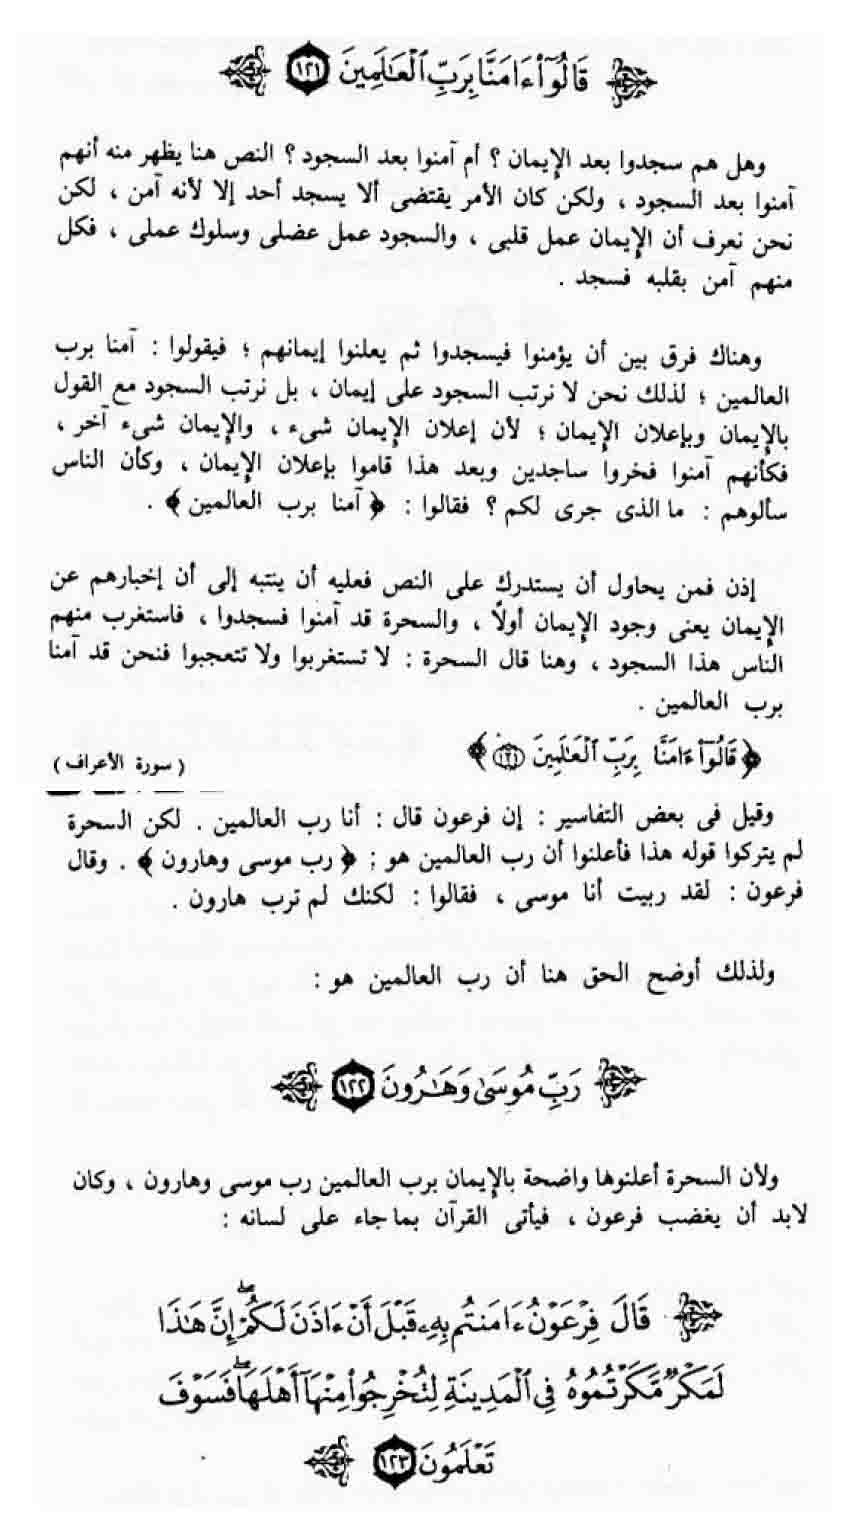 قَالُوٓا۟ ءَامَنَّا بِرَبِّ ٱلْعَـٰلَمِينَ ١٢١
وهل هم سجدوا بعد الإيمان ؟ أم آمنوا بعد السجود ؟ النص هنا يظهر منه أنهم
آمنوا بعد السجود ، ولكن كان الأمر يقتضى ألا يسجد أحد إلا لأنه آمن ، لكن
نحن نعرف أن الإيمان عمل قلبى ، والسجود عمل عضلى وسلوك عملى ، فكل
منهم آمن بقلبه فسجد .
وهناك فرق بين أن يؤمنوا فيسجدوا ثم يعلنوا إيمانهم ؛ فيقولوا : آمنا برب
العالمين ؛ لذلك نحن لا نرتب السجود على إيمان ، بل نرتب السجود مع القول
بالإيمان وبإعلان الإيمان ؛ لأن إعلان الإيمان شىء ، والإيمان شىء آخر ،
فكأنهم آمنوا فخروا ساجدين وبعد هذا قاموا بإعلان الإيمان ، وكأن الناس
سألوهم : ما الذى جرى لكم ؟ فقالوا : ﴿ آمنا برب العالمين ﴾ .
إذن فمن يحاول أن يستدرك على النص فعليه أن ينتبه إلى أن إخبارهم عن
الإيمان يعنى وجود الإيمان أولًا ، والسحرة قد آمنوا فسجدوا ، فاستغرب منهم
الناس هذا السجود ، وهنا قال السحرة : لا تستغربوا ولا تتعجبوا فنحن قد آمنا
برب العالمين .
﴿ قَالُوٓا۟ ءَامَنَّا بِرَبِّ ٱلْعَـٰلَمِينَ ١٢١ ﴾ ( سورة الأعراف )
وقيل فى بعض التفاسير : إن فرعون قال : أنا رب العالمين . لكن السحرة
لم يتركوا قوله هذا فأعلنوا أن رب العالمين هو : ﴿ رب موسى وهارون ﴾ . وقال
فرعون : لقد ربيت أنا موسى ، فقالوا : لكنك لم ترب هارون .
ولذلك أوضح الحق هنا أن رب العالمين هو :
رَبِّ مُوسَىٰ وَهَـٰرُونَ ١٢٢
ولأن السحرة أعلنوها واضحة بالإيمان برب العالمين رب موسى وهارون ، وكان
لابد أن يغضب فرعون ، فيأتى القرآن بما جاء على لسانه :
قَالَ فِرْعَوْنُ ءَامَنتُم بِهِۦ قَبْلَ أَنْ ءَاذَنَ لَكُمْ ۖ إِنَّ هَـٰذَا
لَمَكْرٌ مَّكَرْتُمُوهُ فِى ٱلْمَدِينَةِ لِتُخْرِجُوا۟ مِنْهَآ أَهْلَهَا ۖ فَسَوْفَ
تَعْلَمُونَ ١٢٣